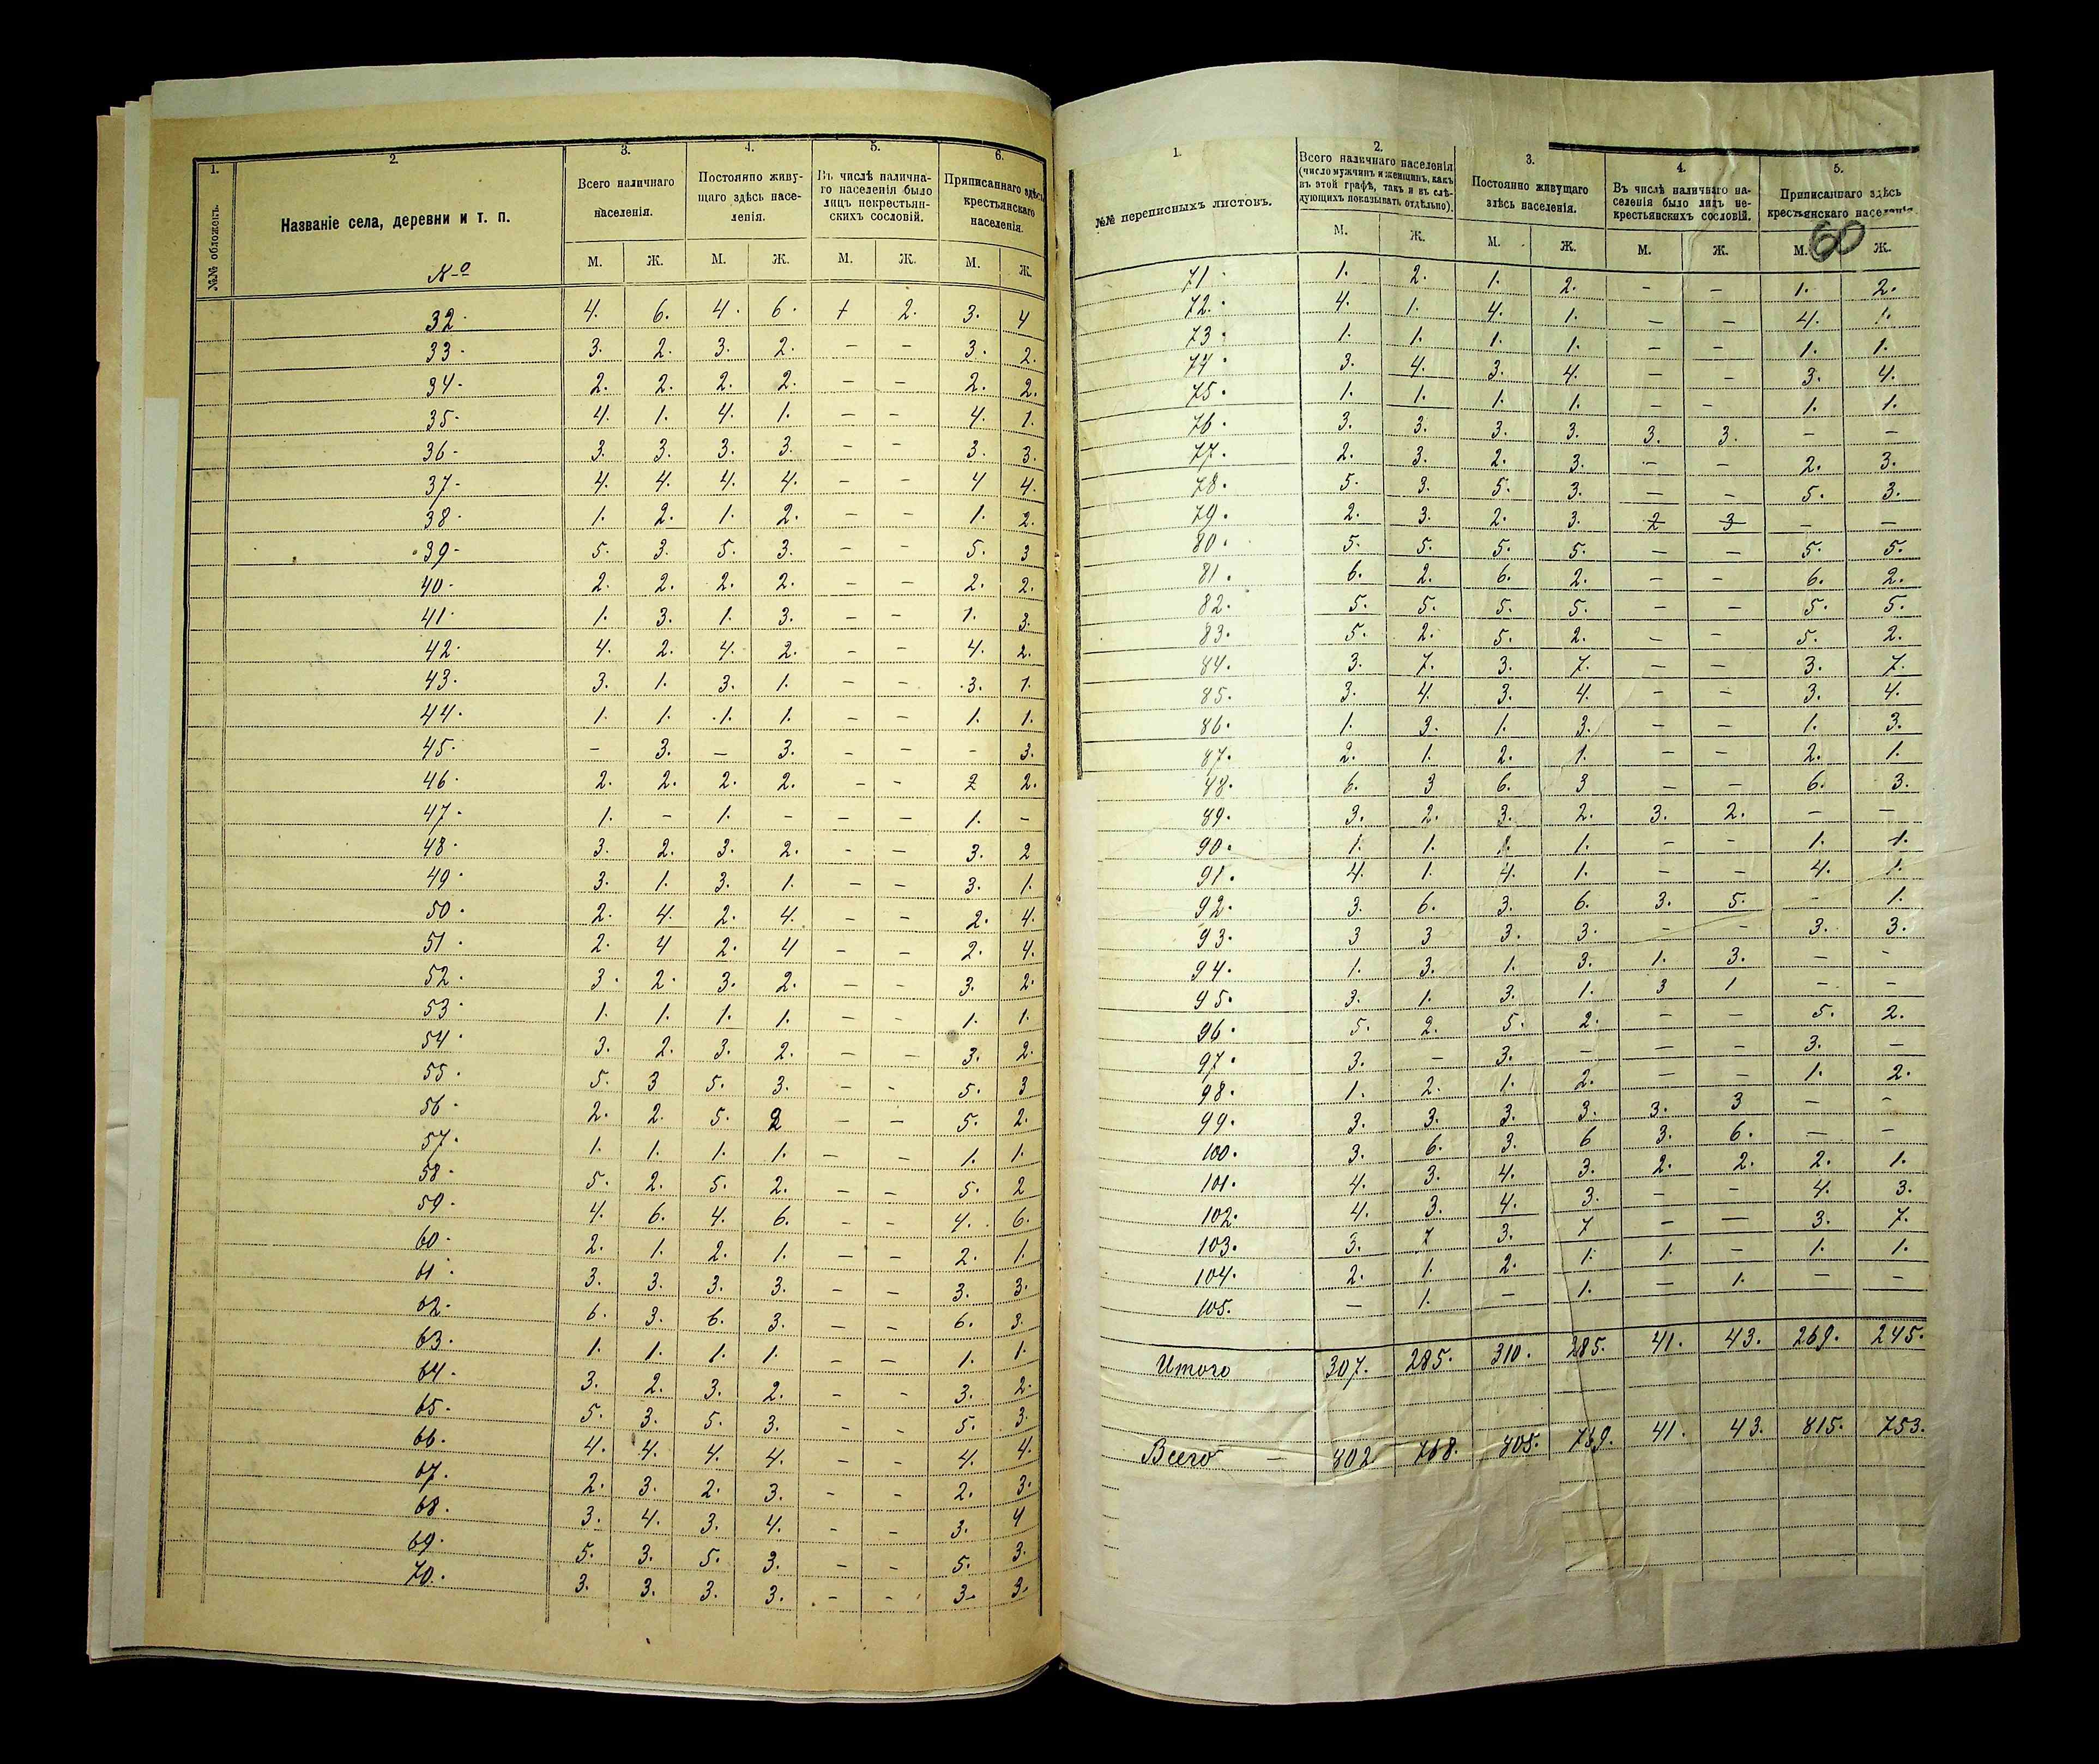 1. 2. 3. 4. 5. 6.
№№ обложекъ.
Названіе села, деревни и т. п.
Всего наличнаго населенія.
Постоянно живущаго здѣсь населенія.
Въ числѣ наличнаго населенія было лицъ некрестьянскихъ сословій.
Приписаннаго здѣсь крестьянскаго населенія.
М. Ж. М. Ж. М. Ж. М. Ж.
№
32. 4. 6. 4. 6. 2. 3. 4
33. 3. 2. 3. 2. – – 3. 2.
34. 2. 2. 2. 2. – – 2. 2.
35. 4. 1. 4. 1. – – 4. 1.
36. 3. 3. 3. 3. – – 3. 3.
37. 4. 4. 4. 4. – – 4 4.
38. 1. 2. 1. 2. – – 1. 2.
39. 5. 3. 5. 3. – – 5. 3
40. 2. 2. 2. 2. – – 2. 2.
41. 1. 3. 1. 3. – – 1. 3.
42. 4. 2. 4. 2. – – 4. 2.
43. 3. 1. 3. 1. – – 3. 1.
44. 1. 1. 1. 1. – – 1. 1.
45. – 3. – 3. – – – 3.
46. 2. 2. 2. 2. – – 2 2.
47. 1. – 1. – – – 1. –
48. 3. 2. 3. 2. – – 3. 2
49. 3. 1. 3. 1. – – 3. 1.
50. 2. 4. 2. 4. – – 2. 4.
51. 2. 4 2. 4 – – 2. 4.
52. 3. 2. 3. 2. – – 3. 2.
53. 1. 1. 1. 1. – – 1. 1.
54. 3. 2. 3. 2. – – 3. 2.
55. 5. 3 5. 3. – – 5. 3
56. 2. 2. 5. 2 – – 5. 2.
57. 1. 1. 1. 1. – – 1. 1.
58. 5. 2. 5. 2. – – 5. 2
59. 4. 6. 4. 6. – – 4. 6.
60. 2. 1. 2. 1. – – 2. 1.
61. 3. 3. 3. 3. – – 3. 3.
62. 6. 3. 6. 3. – – 6. 3.
63. 1. 1. 1. 1. – – 1. 1.
64. 3. 2. 3. 2. – – 3. 2.
65. 5. 3. 5. 3. – – 5. 3.
66. 4. 4. 4. 4. – – 4. 4.
67. 2. 3. 2. 3. – – 2. 3.
68. 3. 4. 3. 4. – – 3. 4
69. 5. 3. 5. 3. – – 5. 3.
70. 3. 3. 3. 3. – – 3. 3.
1. 2. 3. 4. 5.
№№ переписныхъ листовъ.
Всего наличнаго населенія (число мужчинъ и женщинъ, какъ въ этой графѣ, такъ и въ слѣдующихъ показывать отдѣльно).
Постоянно живущаго здѣсь населенія.
Въ числѣ наличнаго населенія было лицъ некрестьянскихъ сословій.
Приписаннаго здѣсь крестьянскаго населенія.
60
М. Ж. М. Ж. М. Ж. М. Ж.
71. 1. 2. 1. 2. – – 1. 2.
72. 4. 1. 4. 1. – – 4. 1.
73. 1. 1. 1. 1. – – 1. 1.
74. 3. 4. 3. 4. – – 3. 4.
75. 1. 1. 1. 1. – – 1. 1.
76. 3. 3. 3. 3. 3. 3. – –
77. 2. 3. 2. 3. – – 2. 3.
78. 5. 3. 5. 3. – – 5. 3.
79. 2. 3. 2. 3. 2 3 – –
80. 5. 5. 5. 5. – – 5. 5.
81. 6. 2. 6. 2. – – 6. 2.
82. 5. 5. 5. 5. – – 5. 5.
83. 5. 2. 5. 2. – – 5. 2.
84. 3. 7. 3. 7. – – 3. 7.
85. 3. 4. 3. 4. – – 3. 4.
86. 1. 3. 1. 3. – – 1. 3.
87. 2. 1. 2. 1. – – 2. 1.
88. 6. 3 6. 3 – – 6. 3.
89. 3. 2. 3. 2. 3. 2. – –
90. 1. 1. 1. 1. – – 1. 1.
91. 4. 1. 4. 1. – – 4. 1.
92. 3. 6. 3. 6. 3. 5. – 1.
93. 3 3 3. 3. – – 3. 3.
94. 1. 3. 1. 3. 1. 3. – –
95. 3. 1. 3. 1. 3 1 – –
96. 5. 2. 5. 2. – – 5. 2.
97. 3. – 3. – – – 3. –
98. 1. 2. 1. 2. – – 1. 2.
99. 3. 3. 3. 3. 3. 3 – –
100. 3. 6. 3. 6 3. 6. – –
101. 4. 3. 4. 3. 2. 2. 2. 1.
102. 4. 3. 4. 3. – – 4. 3.
103. 3. 7 3. 7 – – 3. 7.
104. 2. 1. 2. 1. 1. – 1. 1.
105. – 1. – 1. – 1. – –
Итого 307. 285. 310. 285. 41. 43. 269. 245.
Всего – 802 768. 805. 769. 41. 43. 815. 753.